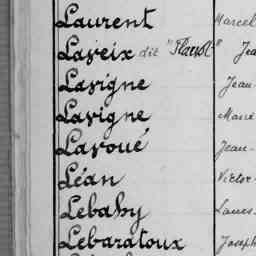 Laurent Marcel
Laveix dit
Lavigne Jean-
Lavigne
Lavoué Jean-
Léan Victor-
Lebahy Louis-
Lebaratoux Joseph